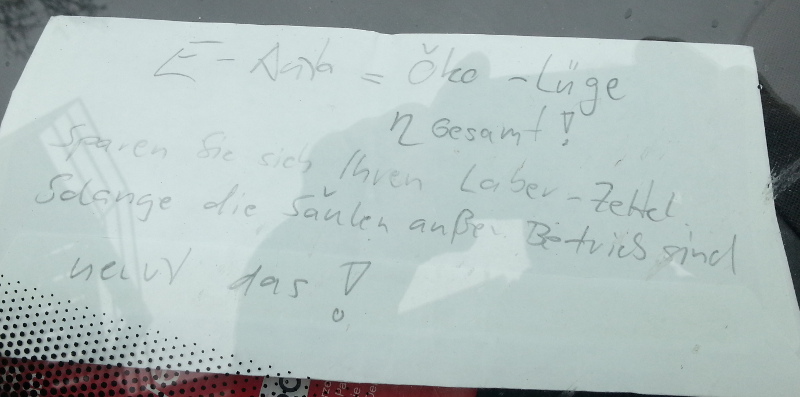 E-Auto = Öko-Lüge
η Gesamt!
Sparen Sie sich Ihren Laber-Zettel
Solange die Säulen außer Betrieb sind
nervt das!